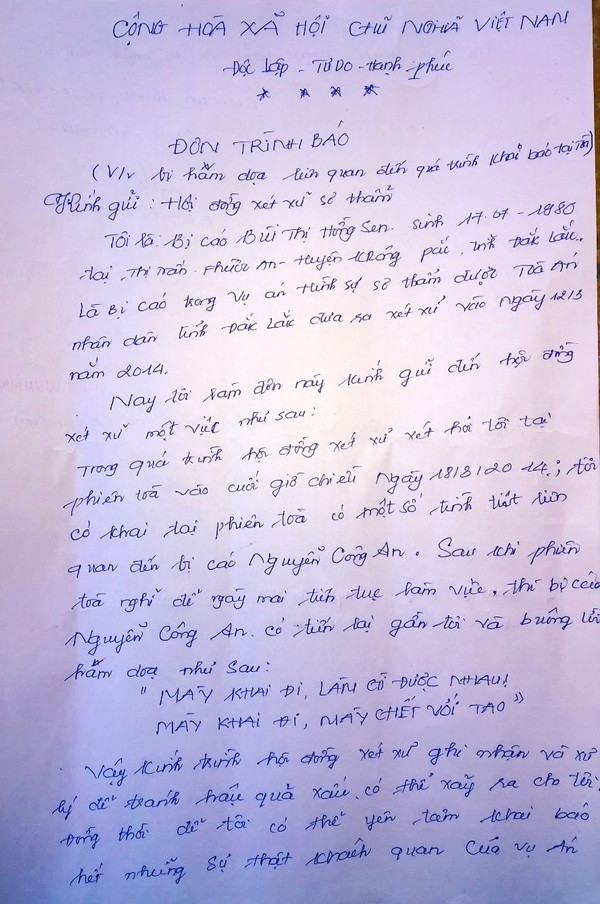 CỘNG HOÀ XÃ HỘI CHŨ NGHĨA VIỆT NAM
Độc lập - Tự Do - Hạnh phúc
ĐƠN TRÌNH BÁO
(V/v bị hắm dọa liên quan đến quá trình khai báo tại Toà)
Kính gửi : Hội đồng xét xử sơ thẩm
Tôi là: Bị cáo Bùi Thị Hồng Sen. sinh 17.07-1980
tại Thị trấn Phước An - Huyện Krông pắc, tỉnh Đắk Lắk.
Là Bị cáo trong vụ án hình sự sơ thẩm được Toà Án
nhân dân tỉnh Đắk Lắk đưa ra xét xử vào ngày 12/3
năm 2014.
Nay tôi làm đơn này kính gửi đến hội đồng
xét xử một việc như sau:
Trong quá trình hội đồng xét xử xét hỏi tôi tại
phiên toà vào cuối giờ chiều Ngày 18/3/2014; tôi
có khai tại phiên toà có một số tình tiết liên
quan đến bị cáo Nguyễn Công An. Sau khi phiên
toà nghĩ để ngày mai tiếp tục làm việc, thì bị cáo
Nguyễn Công An. có tiến lại gần tôi và buông lời
hắm doạ như Sau:
"MÀY KHAI ĐI, LÀM GÌ ĐƯỢC NHAU!
MÀY KHAI ĐI, MÀY CHẾT VỚI TAO"
Vậy kính trình hội đồng xét xử ghi nhận và xử
lý để tránh hậu quả xấu có thể xãy ra cho tôi,
Đồng thời để tôi có thể yên tâm khai báo
hết những sự thật khách quan của vụ Án